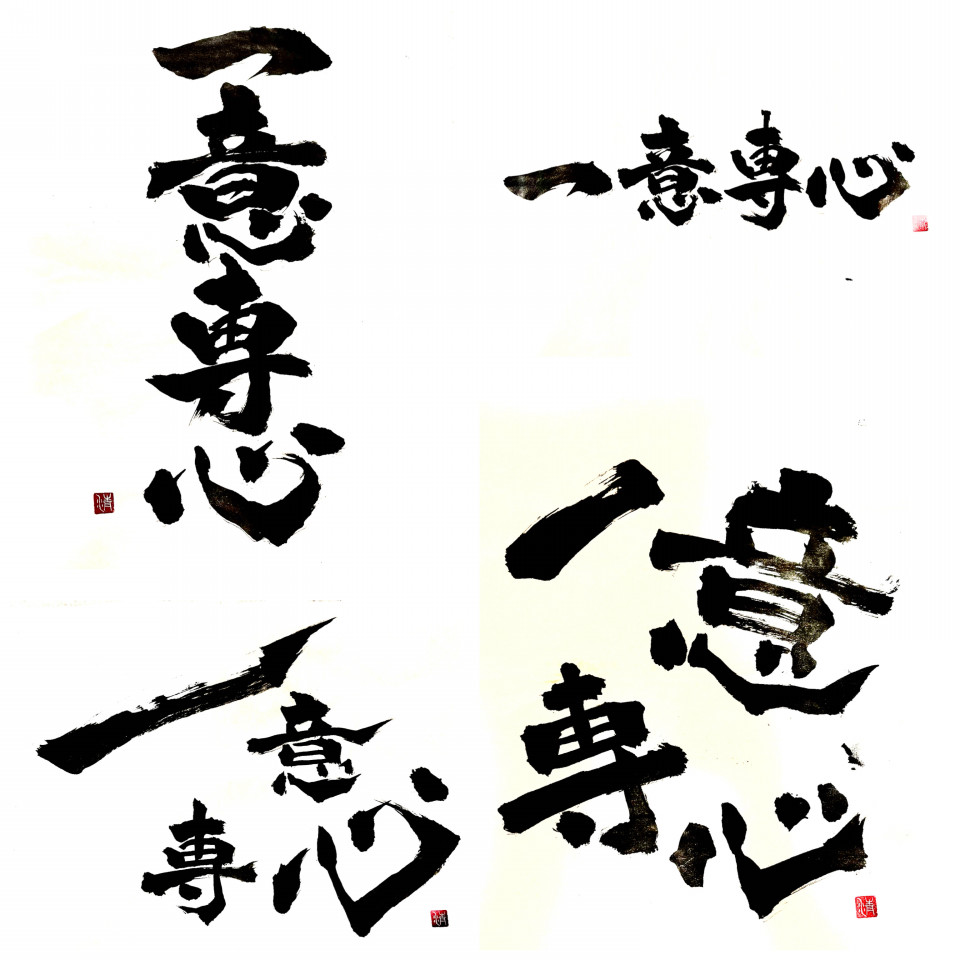 一意専心
一意専心
一意
専心
一意
専心